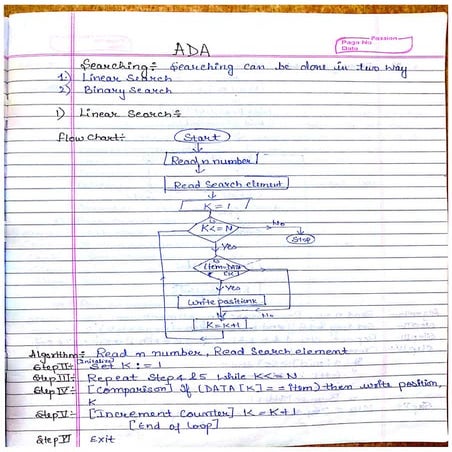 ADA
Passion
Page No
Date
Searching:- Searching can be done in two way
1) Linear Search
2) Binary Search
1) Linear Search:-
Flow Chart:-
Start
Read n number
Read Search element
K = 1
is
K<=N
No
Stop
Yes
is
item=DATA
[K]
Yes
Write position K
No
K = K+1
Algorithm:- Read n number, Read Search element
Step II:- [Initialize] Set K := 1
Step III:- Repeat Step 4 & 5 while K<=N
Step IV:- [Comparison] If (DATA [K] == item) then write position,
K
Step V:- [Increment Counter] K = K+1
[End of Loop]
Step VI Exit